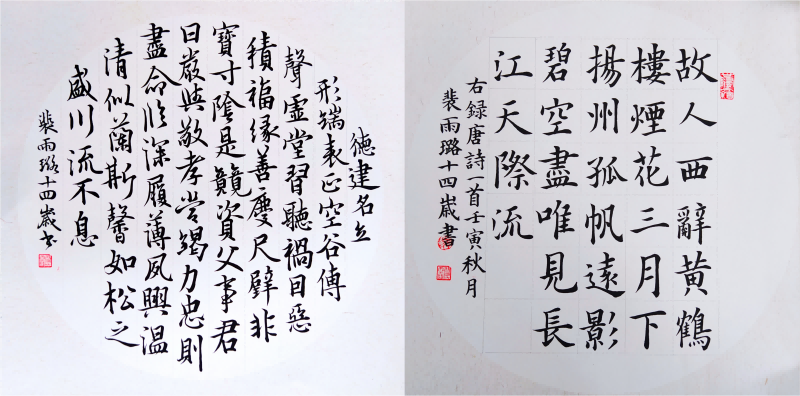 德建名立
形端表正空谷傳
聲虛堂習聽禍因惡
積福緣善慶尺璧非
寶寸陰是競資父事君
曰嚴與敬孝當竭力忠則
盡命臨深履薄夙興溫
清似蘭斯馨如松之
盛川流不息
裴雨璐十四歲書
故人西辭黃鶴
樓煙花三月下
揚州孤帆遠影
碧空盡唯見長
江天際流
右録唐詩一首壬寅秋月
裴雨璐十四歲書